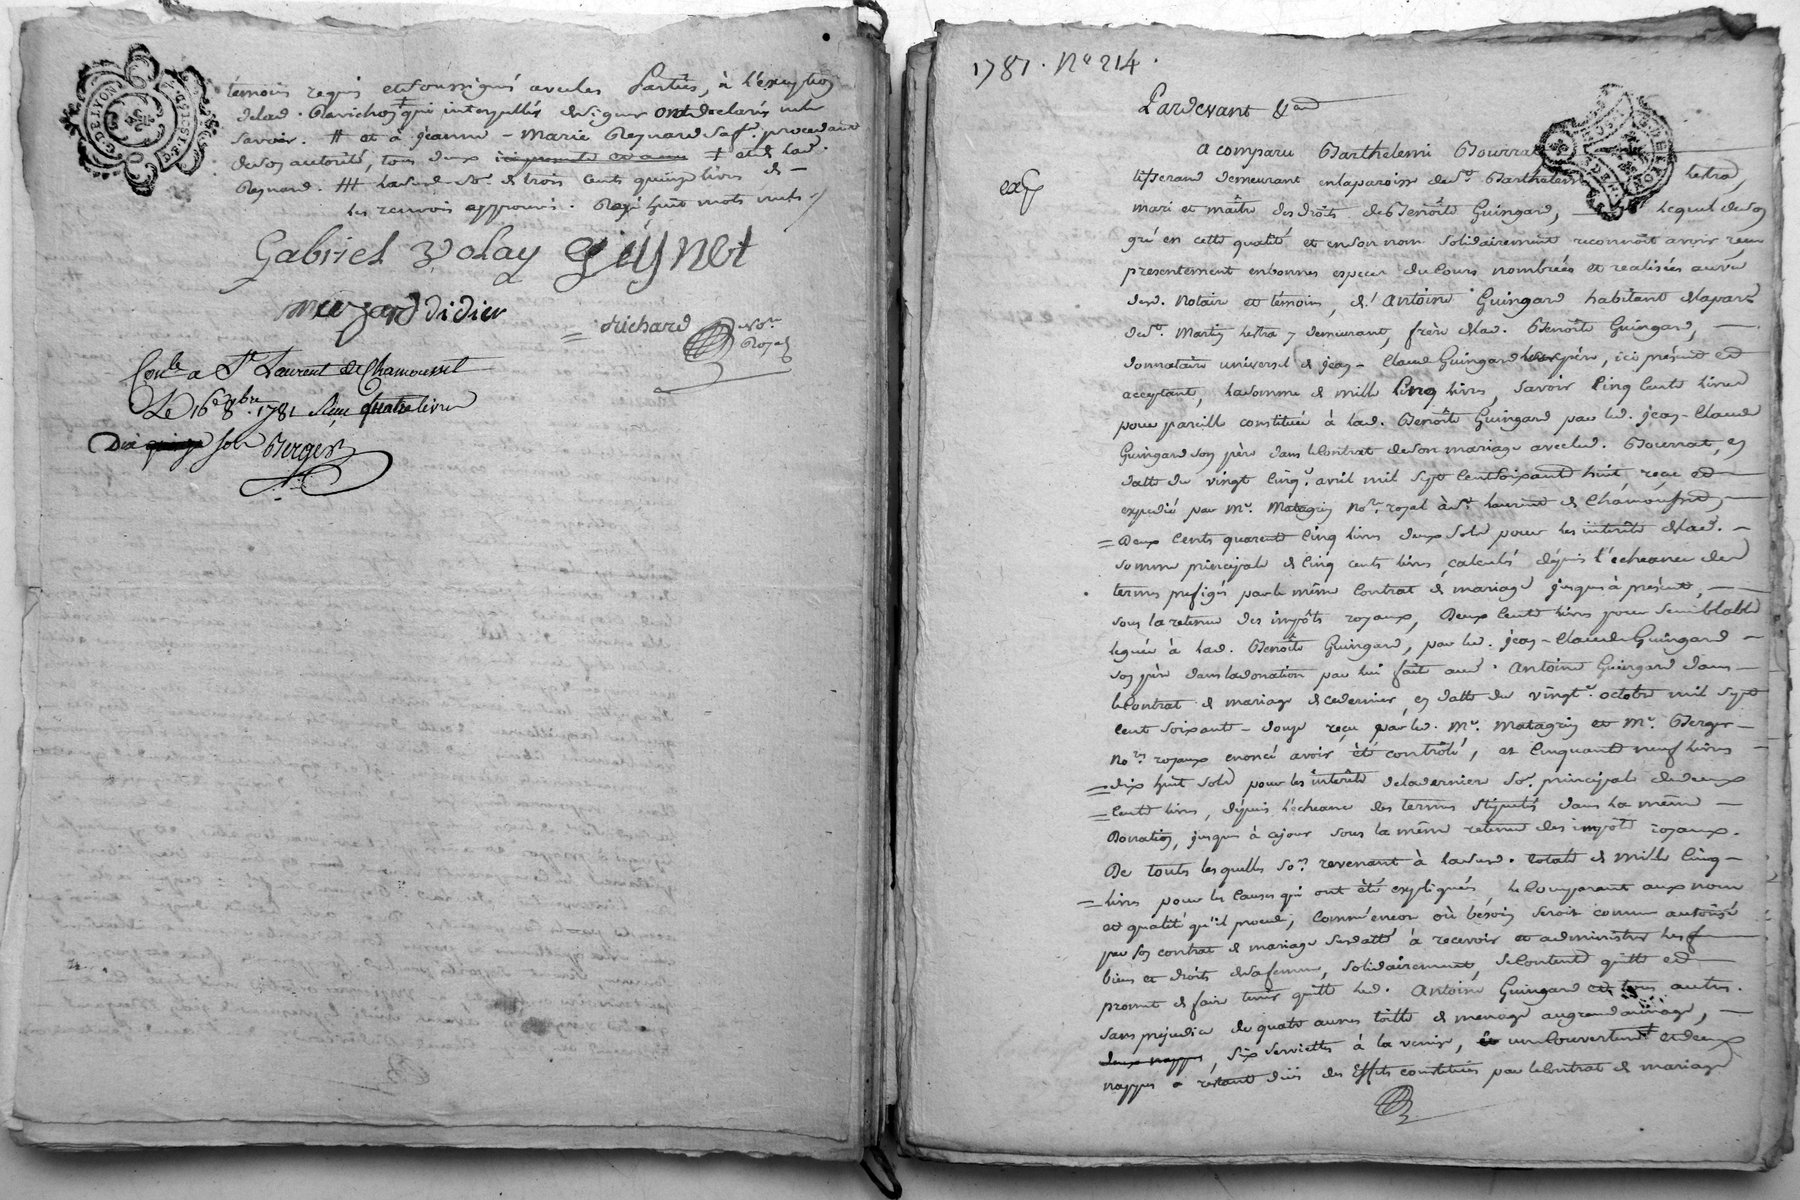 témoins requis et soussignés avec les parties, à l'exception
de lad. Perrichon ‡ qui interpellés de signer ont déclarés ne le
savoir. # et à jeanne - Marie Reynard sa fe. procedante
de son autorité, tous deux ‡ et de lad.
Reynard. ## lad. de so.e de trois cents quinze livres de -
les renvois approuvés. Rayé huit mots nuls.
Gabriel Volay guynet
muzard didier
= Richard no.re
Royal
Con.lé a St. Laurent de Chamousset
Le 16 8bre 1781 Reçu quatre livres
Dix sols Berger
G. DE LYON
1781. No 214.
Pardevant &a
exp.
a comparu Barthelemi Bourrat
tisserand demeurant en la paroisse de St. Barthelemi Lestra,
mari et maitre des droits de Benoîte Guingard, lequel de son
gré en cette qualité et en son nom solidairement reconnoit avoir reçu
presentement en bonnes especes du cours nombrées et realisées au vû
des d. Notaire et témoins, d'Antoine Guingard habitant de la par.se
de St. Martin lestra y demeurant, frère de lad. Benoîte Guingard, -
donnataire universel de jean - Claude Guingard leur père, ici présent et
acceptant, la somme de mille cinq livres, savoir cinq cents livres
pour pareille constituée à lad. Benoîte Guingard par led. jean - Claude
Guingard son père dans le Contrat de son mariage avec led. Bourrat, en
datte du vingt cinq avril mil sept cent soixante huit, reçu et
expedié par Me. Matagrin no.re royal à St. laurent de Chamousset, -
= Deux cents quarente cinq livres deux sols pour les interêts de lad. -
somme principale de cinq cents livres calculés dépuis l'écheance des
termes prefigés par le même Contrat de mariage jusques à présent, -
sous la retenue des impôts royaux, Deux cents livres pour semblable
leguée à lad. Benoîte Guingard, par led. jean - Claude Guingard -
son père dans la donation par lui faite aud. Antoine Guingard dans -
le Contrat de mariage de ce dernier, en datte du vingt octobre mil sept
cent soixante - douze reçu par led. Me. Matagrin et Me. Berger -
no.res royaux enoncé avoir été contrôlé, et cinquante neuf livres -
= dix huit sols pour les interêts de la derniere so.e principale de deux
= cents livres, dépuis l'écheance des termes stipulés dans la même -
Donation, jusques à ce jour sous la même retenue des impôts royaux.
De toutes lesquelles so.es revenant à lad. totale de mille cinq -
= livres pour les causes qui ont été expliquées, le Comparant aux nom
et qualité qu'il procede, comme encore où bésoin seroit comme autorisé
par son contrat de mariage susdatté à recevoir et administrer les
biens et droits de sa femme, solidairement, se Contente quitte et -
promet de faire tenir quitte led. Antoine Guingard et tous autres.
sans préjudice de quatre aunes toille de menage au grand aunage, -
deux nappes, six serviettes à la venise, un couvert et deux
nappes à restant dûs des Effets constitués par le Contrat de mariage